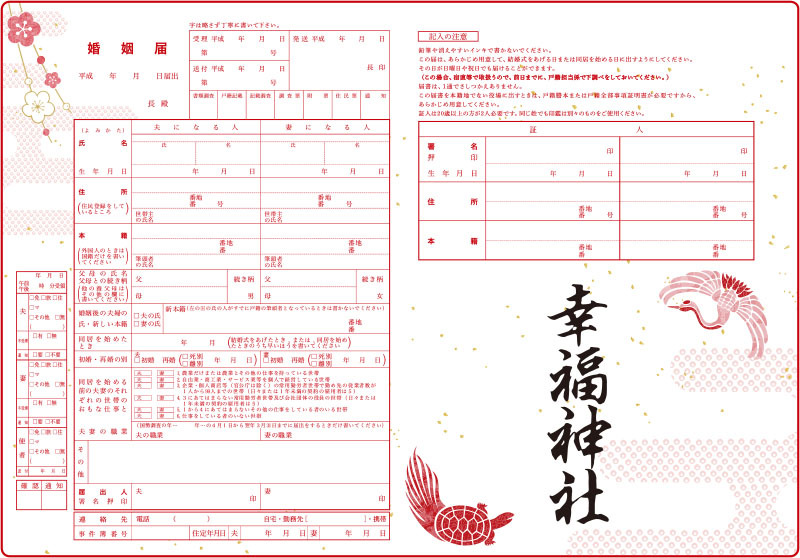 字は略さず丁寧に書いて下さい。
婚姻届
平成 年 月 日届出
長 殿
受理 平成 年 月 日
第 号
発送 平成 年 月 日
送付 平成 年 月 日
第 号
長 印
書類調査 戸籍記載 記載調査 調査票 附票 住民票 通知
(よみかた)
夫になる人
妻になる人
氏名
氏 名
氏 名
生年月日
年 月 日
年 月 日
住所
(住民登録をしているところ)
番地
番 号
番地
番 号
世帯主の氏名
世帯主の氏名
本籍
(外国人のときは国籍だけを書いてください)
番地
番
番地
番
筆頭者の氏名
筆頭者の氏名
父母の氏名
父母との続き柄
(他の養父母はその他の欄に書いてください)
父 続き柄
母 男
父 続き柄
母 女
婚姻後の夫婦の氏・新しい本籍
□夫の氏
□妻の氏
新本籍(左の□の氏の人がすでに戸籍の筆頭者となっているときは書かないでください)
番地
番
同居を始めたとき
年 月
(結婚式をあげたとき、または、同居を始めたときのうち早いほうを書いてください)
初婚・再婚の別
夫 □初婚 再婚 (□死別 □離別 年 月 日)
妻 □初婚 再婚 (□死別 □離別 年 月 日)
同居を始める前の夫妻のそれぞれの世帯のおもな仕事と
夫 妻 1.農業だけまたは農業とその他の仕事を持っている世帯
夫 妻 2.自由業・商工業・サービス業等を個人で経営している世帯
夫 妻 3.企業・個人商店等(官公庁は除く)の常用勤労者世帯で勤め先の従業者数が1人から99人までの世帯(日々または1年未満の契約の雇用者は5)
夫 妻 4.3にあてはまらない常用勤労者世帯及び会社団体の役員の世帯(日々または1年未満の契約の雇用者は5)
夫 妻 5.1から4にあてはまらないその他の仕事をしている者のいる世帯
夫 妻 6.仕事をしている者のいない世帯
夫妻の職業
(国勢調査の年… 年…の4月1日から翌年3月31日までに届出をするときだけ書いてください)
夫の職業
妻の職業
その他
届出人
署名押印
夫 印
妻 印
連絡先
電話 ( )
自宅・勤務先[ ]・携帯
事件簿番号
住定年月日 夫 年 月 日 妻 年 月 日
年 月 日
午前
午後
時 分受領
夫
□免 □旅 □住
□マ
□その他 □無
( )
□有 □無
□要 □不要
妻
□免 □旅 □住
□マ
□その他 □無
( )
□有 □無
□要 □不要
使者
□免 □旅 □住
□マ
□その他 □無
( )
年 月 日
確認 通知
記入の注意
鉛筆や消えやすいインキで書かないでください。
この届は、あらかじめ用意して、結婚式をあげる日または同居を始める日に出すようにしてください。
その日が日曜日や祝日でも届けることができます。
(この場合、宿直等で取扱うので、前日までに、戸籍担当係で下調べをしておいてください。)
届書は、1通でさしつかえありません。
この届書を本籍地でない役場に出すときは、戸籍謄本または戸籍全部事項証明書が必要ですから、
あらかじめ用意してください。
証人は20歳以上の方が2人必要です。同じ姓でも印鑑は別々のものをご使用ください。
証人
署名
押印
印
印
生年月日
年 月 日
年 月 日
住所
番地
番 号
番地
番 号
本籍
番地
番
番地
番
幸福神社